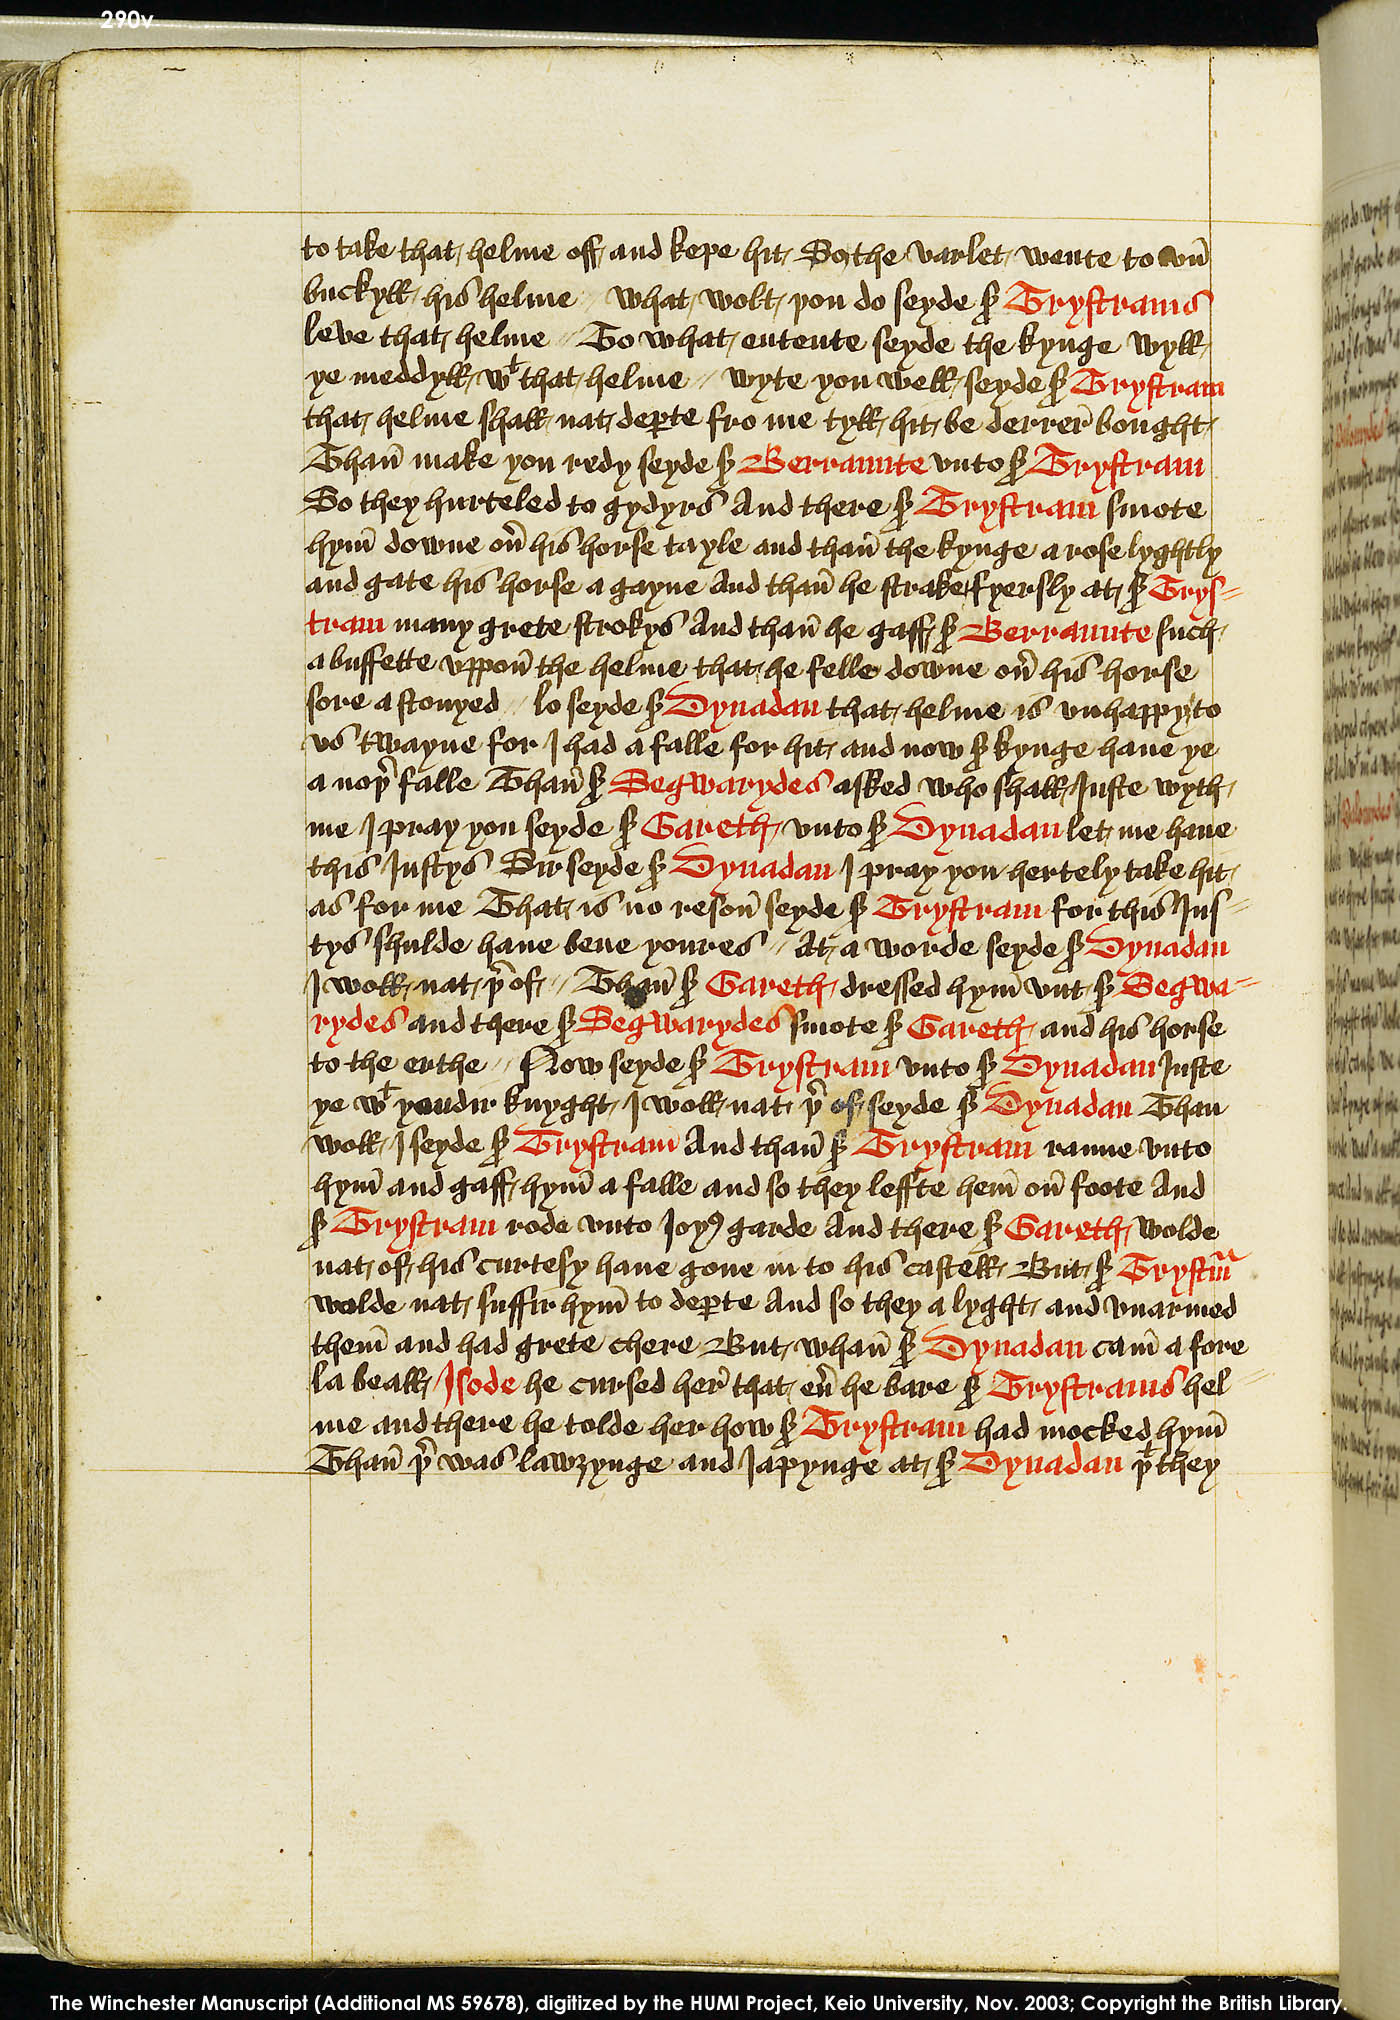 290v
to take that helme off and kepe hit So the varlet wente to vn̄
buckyll his helme // What wolt you do seyde sr̛ Trystrams
leve that helme // To what entente seyde the kynge Wyll
ye meddyll wᵗ that helme // Wyte you well seyde sr̛ Trystram
that helme shall nat deꝑte fro me tyll hit be derrer̄ bought
Than̄ make you redy seyde sr̛ Berraunte vnto sr̛ Trystram
So they hurteled to gydyrs And there sr̛ Trystram smote
hym̄ downe on̄ his horse tayle and than̄ the kynge a rose lyghtly
and gate his horse a gayne And than̄ he strake fyersly at sr̛ Trys=
tram many grete strokys And than̄ he gaff sr̛ Berraunte such
a buffette vppon̄ the helme that he felle downe on̄ his horse
sore a stonyed // lo seyde sr̛ Dynadan that helme is vnhappy to
vs twayne for I had a falle for hit and now sr̛ kynge haue ye
a noþ̛ falle Than̄ sr̛ Segwarydes asked who shall Iuste wyth
me I pray you seyde sr̛ Gareth vnto sr̛ Dynadan let me haue
this Iustys Sir seyde sr̛ Dynadan I pray you hertely take hit
as for me That is no reson̄ seyde sr̛ Trystram for this Ius=
tys shulde haue bene youres // At a worde seyde sr̛ Dynadan
I woll nat þ̛of // Than̄ sr̛ Gareth dressed hym̄ vnt sr̛ Segwa=
rydes and there sr̛ Segwarydes smote sr̛ Gareth and his horse
to the erthe // Now seyde sr̛ Trystram vnto sr̛ Dynadan Iuste
ye wᵗ yondir knyght I woll nat þ̛ of seyde sr̛ Dynadan Than
woll I seyde sr̛ Trystram And than̄ sr̛ Trystram ranne vnto
hym̄ and gaff hym̄ a falle and so they leffte hem̄ on̄ foote And
sr̛ Trystram rode vnto Ioyꝰ garde And there sr̛ Gareth wolde
nat of his curtesy haue gone in to his castell But sr̛ Trystrᵃm
wolde nat suffir hym̄ to deꝑte And so they a lyght and vnarmed
them̄ and had grete chere But whan̄ sr̛ Dynadan cam̄ a fore
la beall Isode he cursed her̄ that eư he bare sr̛ Trystrams hel=
me and there he tolde her how sr̛ Trystram had mocked hym̄
Than̄ þ̛ was lawȝynge and Iapynge at sr̛ Dynadan þᵗ they
The Winchester Manuscript (Additional MS 59678), digitized by the HUMI Project, Keio University, Nov. 2003; Copyright the British Library.